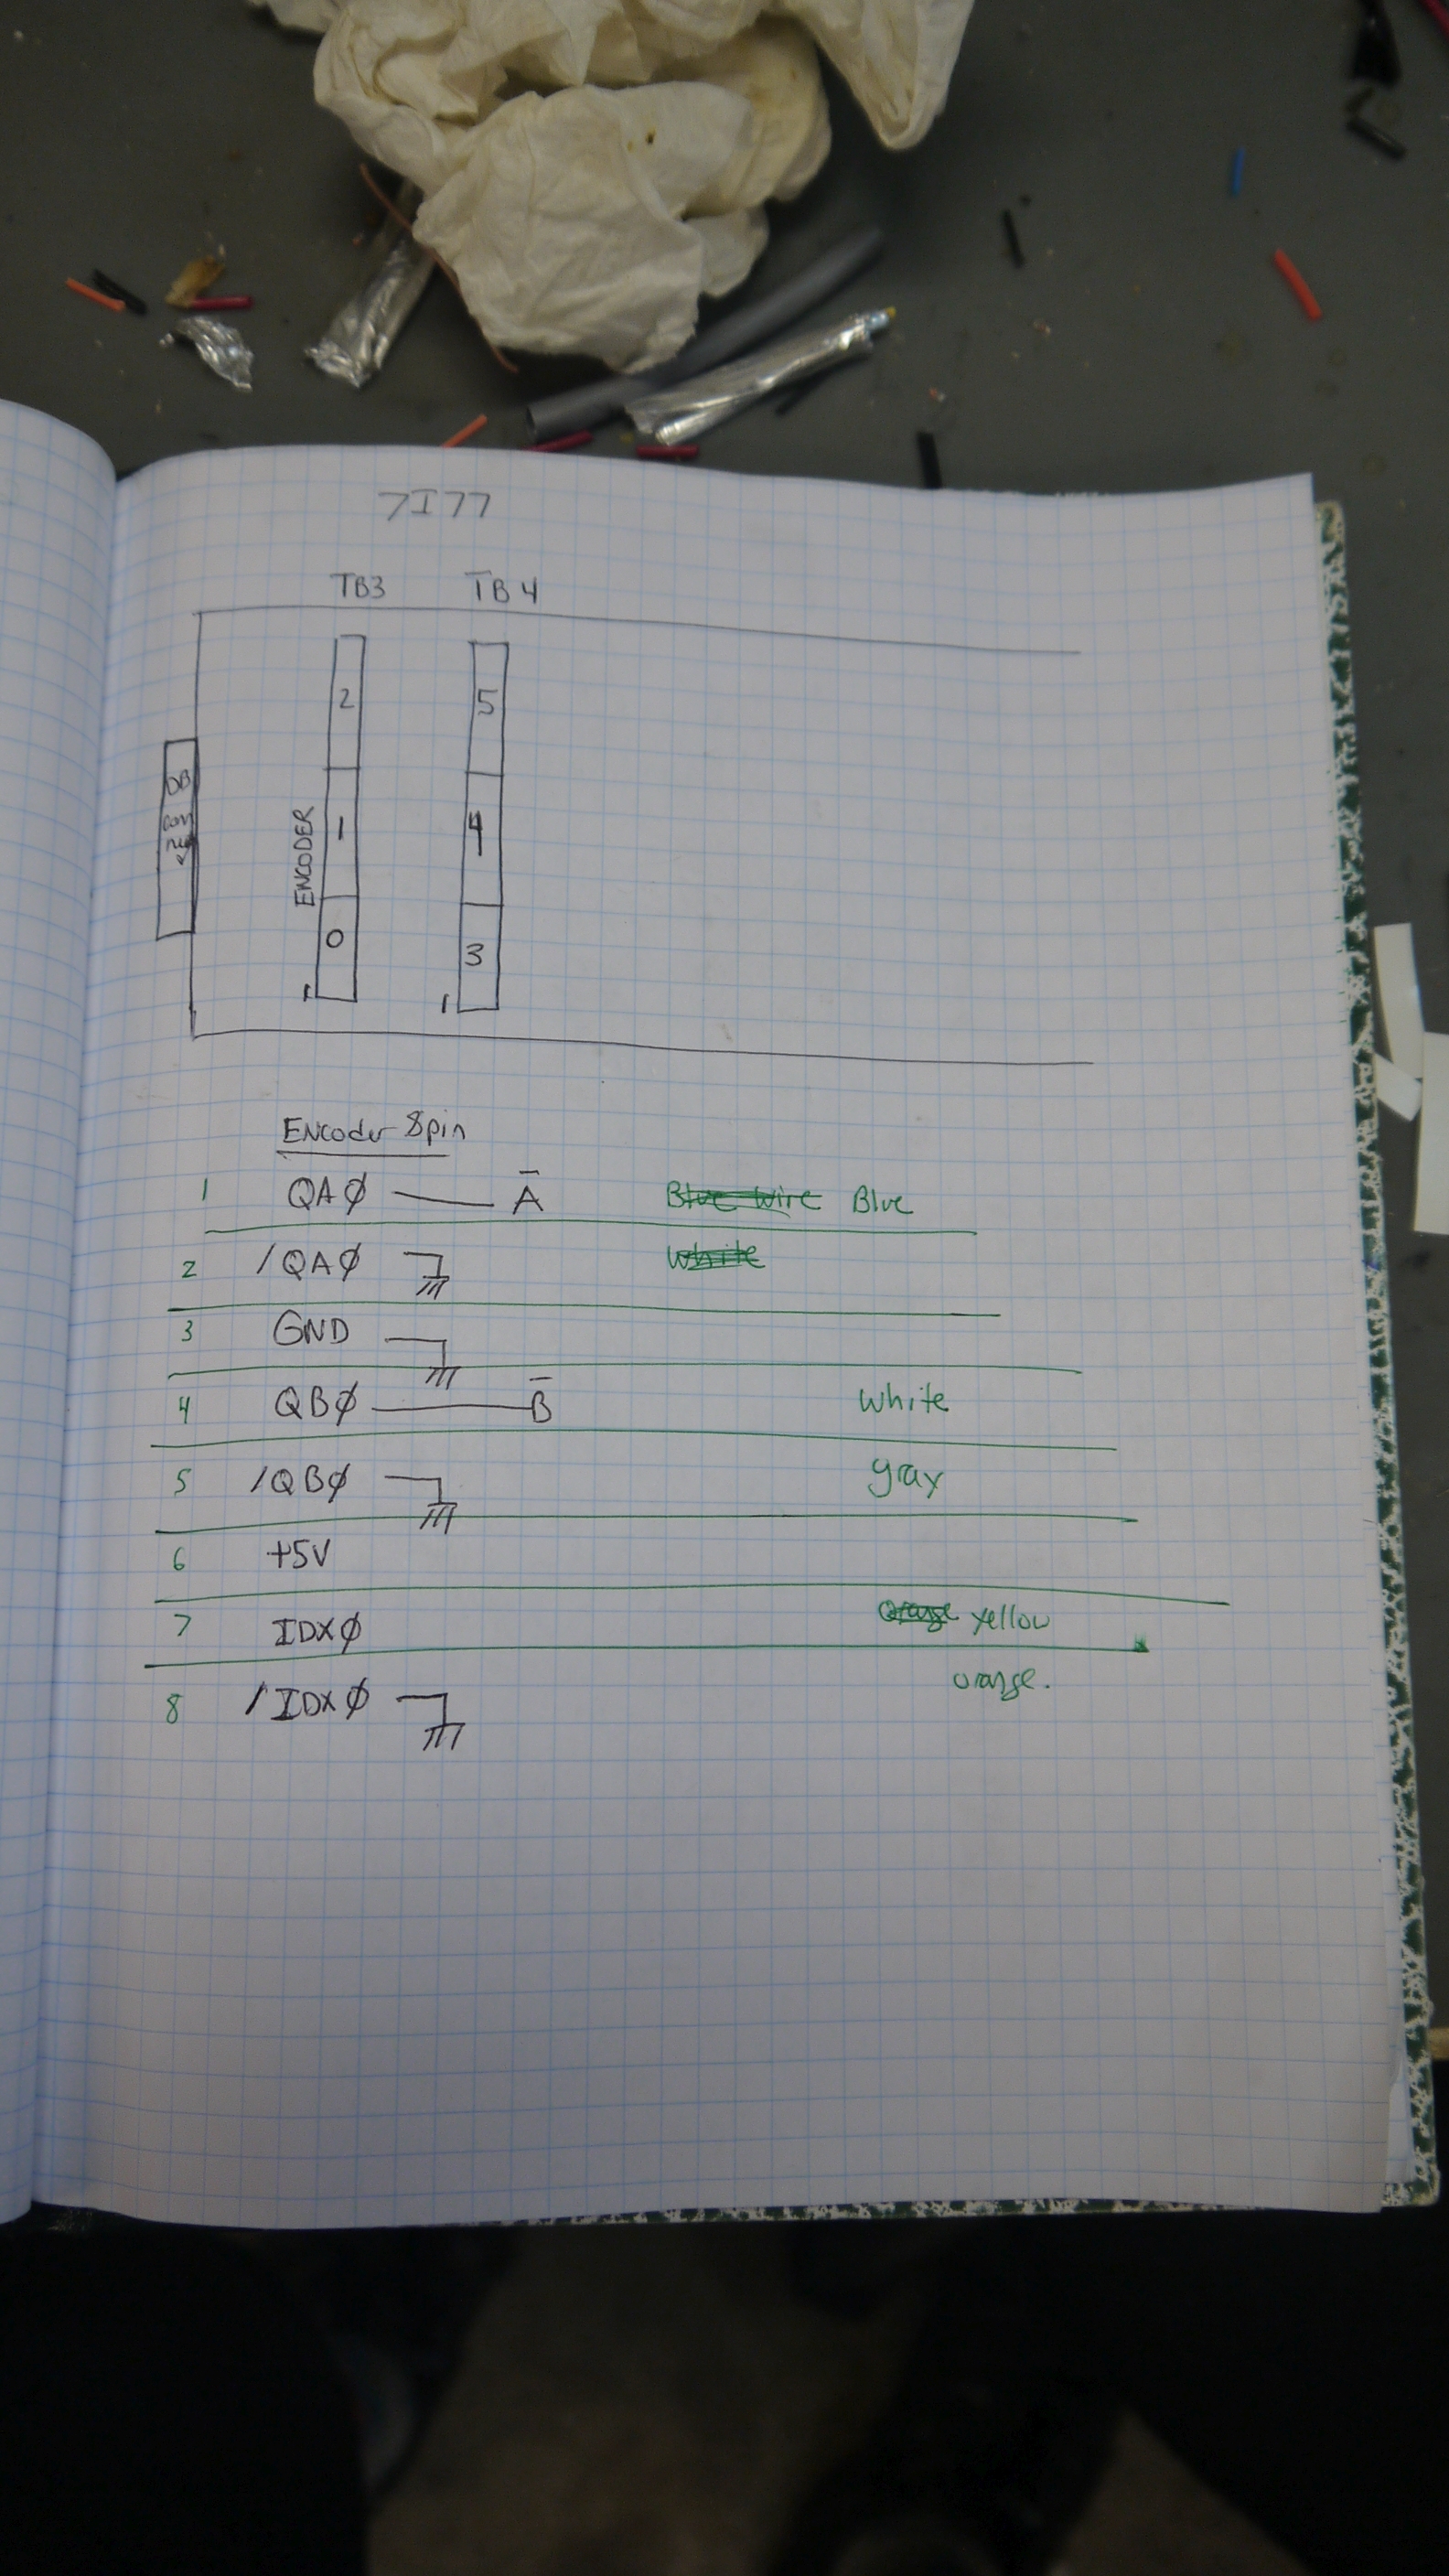 7I77
TB3 TB4
2 5
DB
ENCODER 1 4
0 3
1 1
Encoder 8pin
1 QAØ A̅ Blue wire Blue
2 /QAØ White
3 GND
4 QBØ B̅ white
5 /QBØ gray
6 +5V
7 IDXØ orange yellow
8 /IDXØ orange.